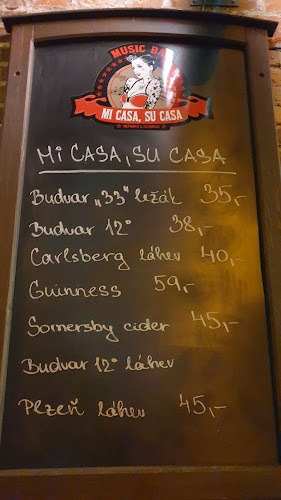 MUSIC BAR
MI CASA, SU CASA
Mi CASA, SU CASA
Budvar „33“ ležák 35,-
Budvar 12° 38,-
Carlsberg láhev 40,-
Guinness 59,-
Somersby cider 45,-
Budvar 12° láhev
Plzeň láhev 45,-